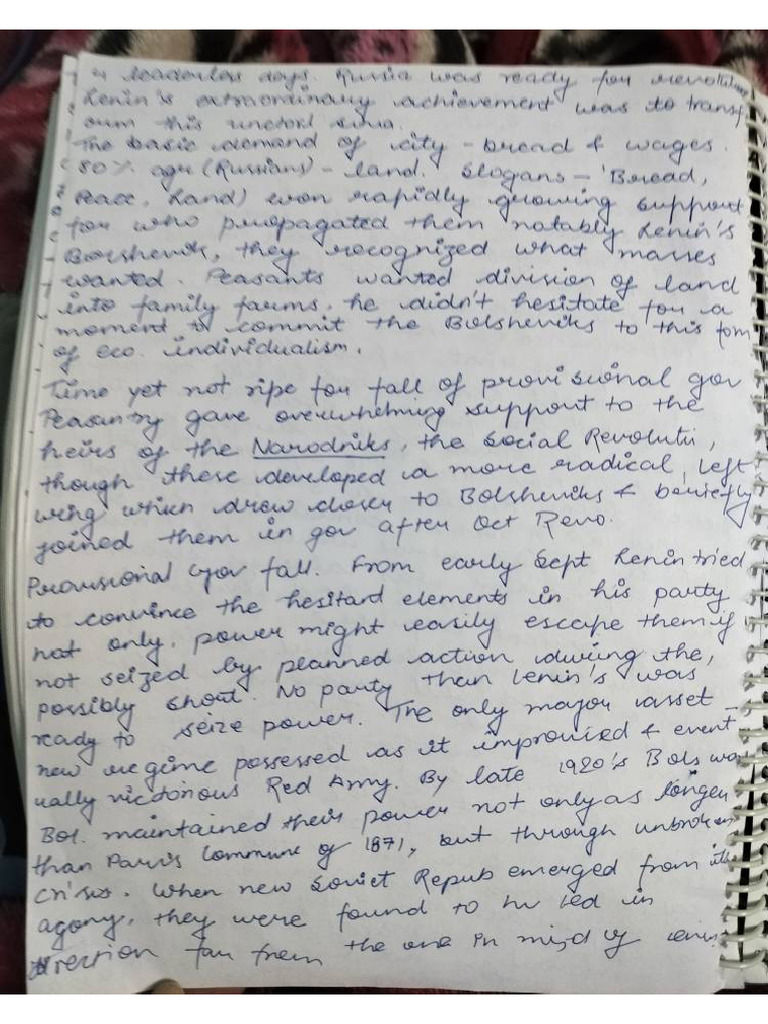 4 leaderless days. Russia was ready for revolution
Lenin's extraordinary achievement was to transf
orm this
The basic demand of city - bread & wages.
80% agr (Russians) - land. Slogans - 'Bread,
Peace, Land) won rapidly growing support
for who propagated them notably Lenin's
Bolsheviks, they recognized what masses
wanted. Peasants wanted division of land
into family farms, he didn't hesitate for a
moment to commit the Bolsheviks to this form
of eco. individualism.
Time yet not ripe for fall of provisional gov
Peasantry gave overwhelming support to the
heirs of the Narodniks, the Social Revoluti,
though these developed a more radical left
wing which drew closer to Bolsheviks & briefly
joined them in gov after Oct Revo.
Provisional gov fall. From early Sept Lenin tried
to convince the hesitant elements in his party
not only, power might easily escape them if
not seized by planned action during the,
possibly short. No party than Lenin's was
ready to seize power. The only major asset
new regime possessed as it improvised & event
ually victorious Red Army. By late 1920's Bols was
Bol. maintained their power not only as longer
than Paris Commune of 1871, but through unbroken
crises. When new Soviet Repub emerged from its
agony, they were found to be led in
direction far from the one in mind of Lenin